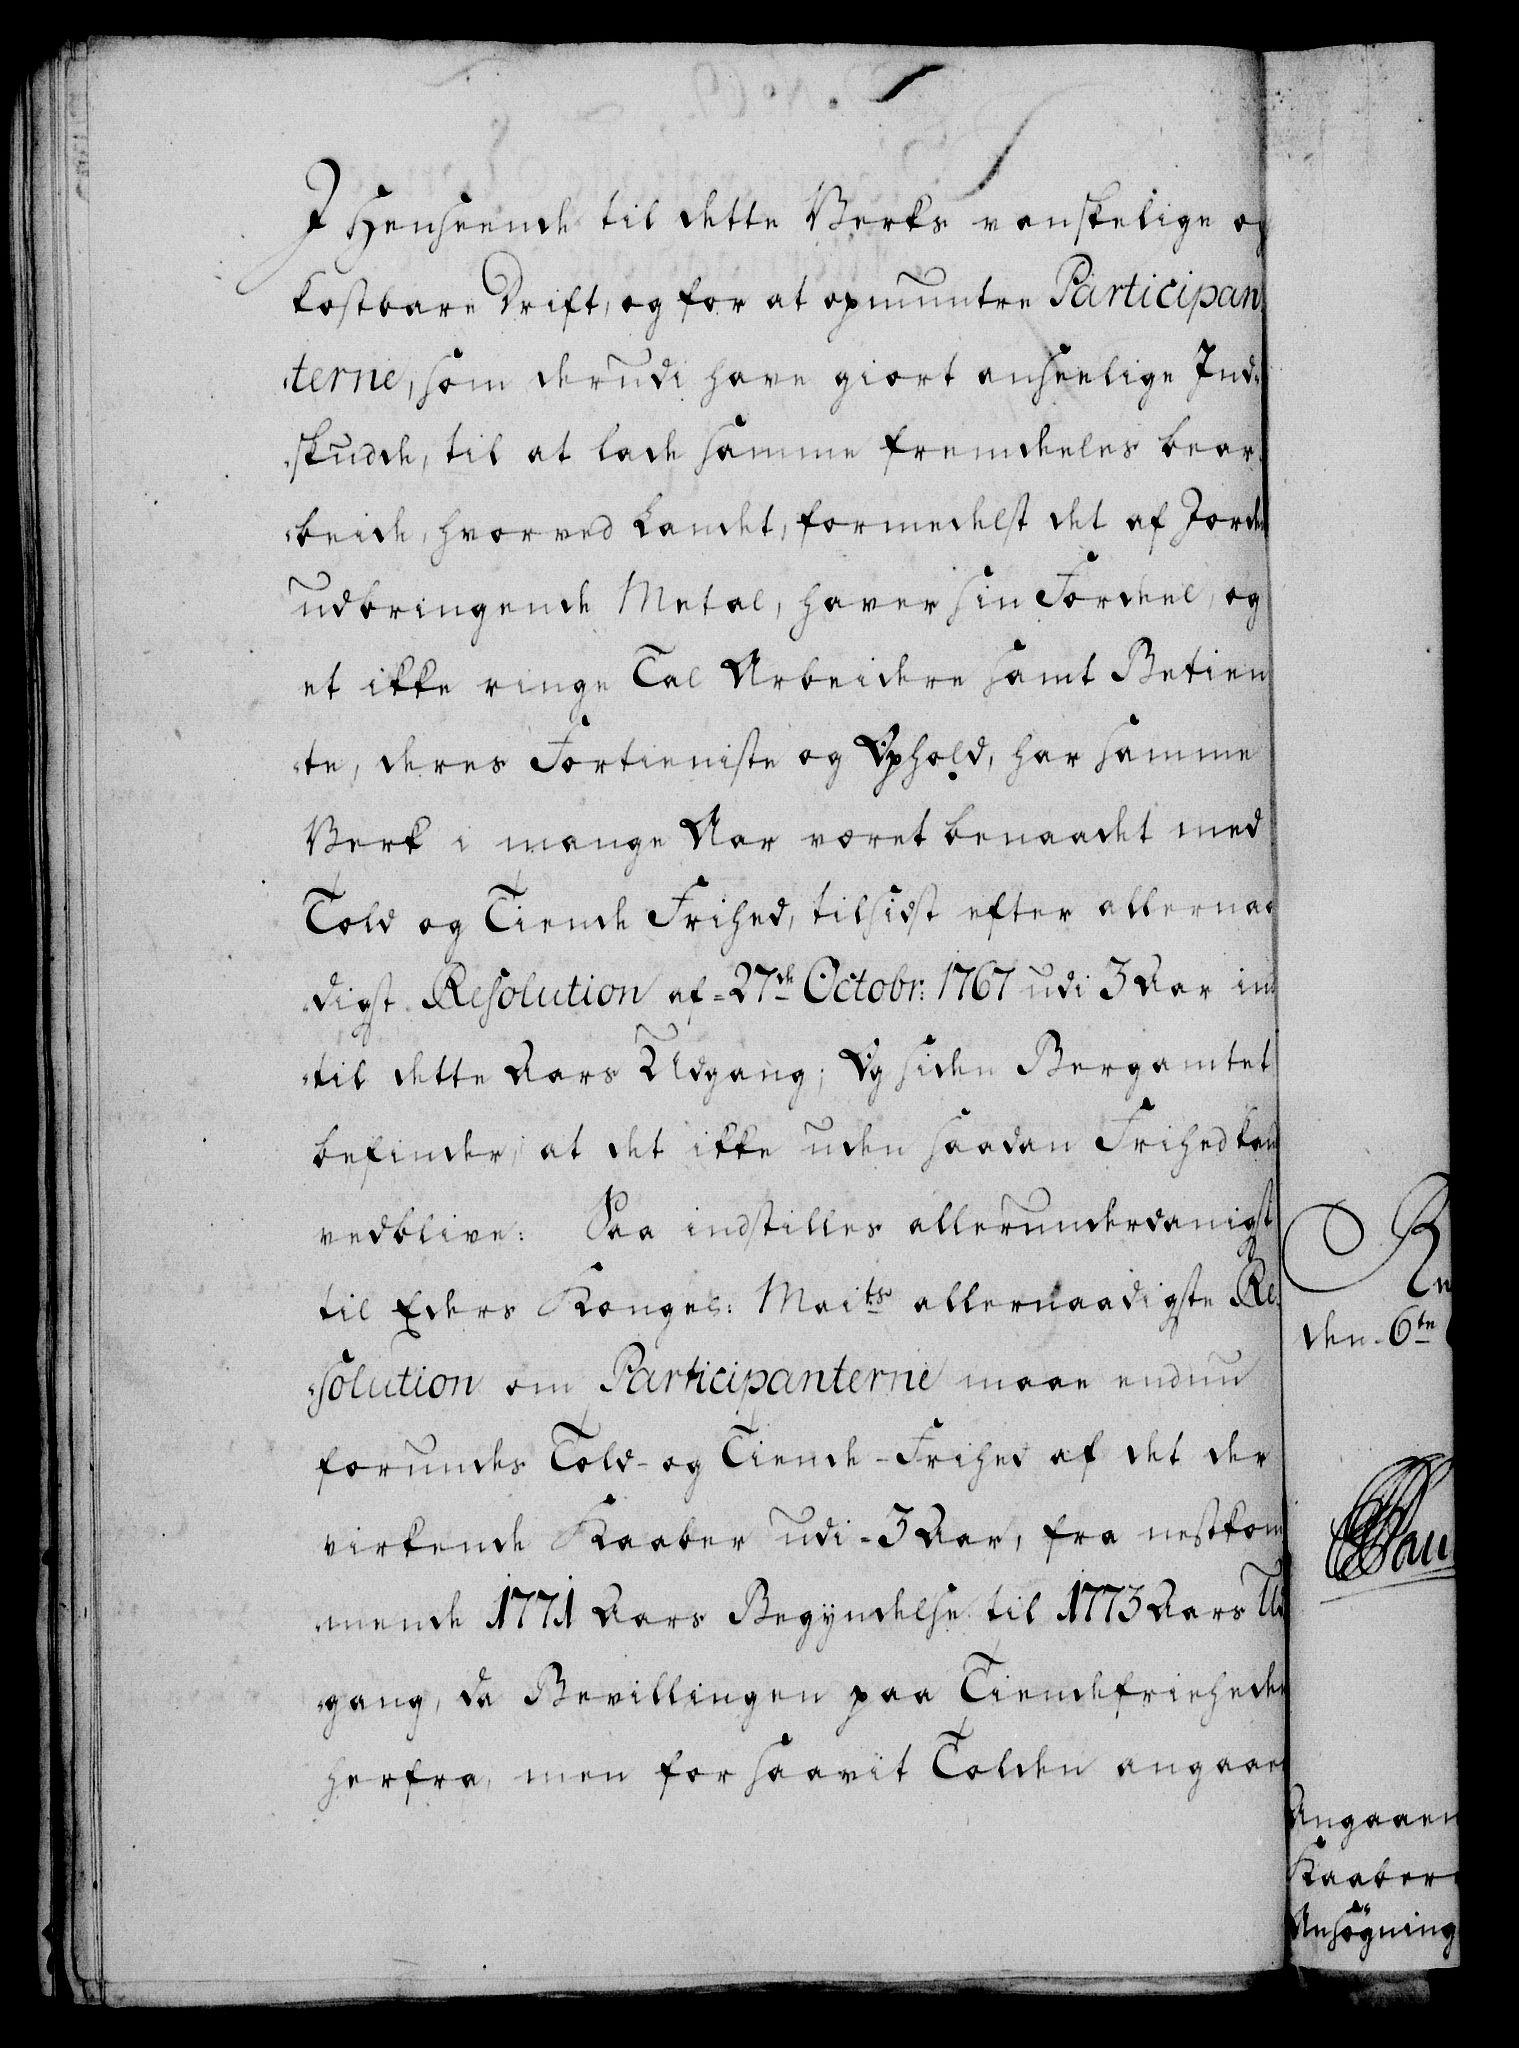 I Henseende til dette Verks vanskelige og
kostbare Drift, og for at opmuntre Participan¬
terne, som derudi have giort anseelige Ind¬
skudde, til at lade samme fremdeeles bear¬
beide, hvorved Landet, formedelst det af Jorden
udbringende Metal, haver sin Fordeel, og
et ikke ringe Tal Arbeidere samt Betien
te, deres Fortieniste og Ophold, har samme
Verk i mange Aar været benaadet med
Told og Tiende Frihed, tilsidst efter allernaa
digst Resolution af 27de Octobr: 1767 udi 3 Aar ind
til dette Aars Udgang; Og siden Bergamtet
befinder, at det ikke uden saadan Frihed kand
vedblive: Saa indstilles allerunderdanigst
til Eders Kongel: Maits allernaadigste Re¬
solution om Participanterne maae endnu
forundes Told- og Tiende-Frihed af det der
virkende Kaaber udi 3 Aar, fra nestkom
mende 1771 Aars Begyndelse til 1773 Aars Ud
gang, da Bevillingen paa Tiendefrieheden
herfra, men for saavit Tolden angaaer
den 6te
Angaaen
Kaaber
Ansøgning